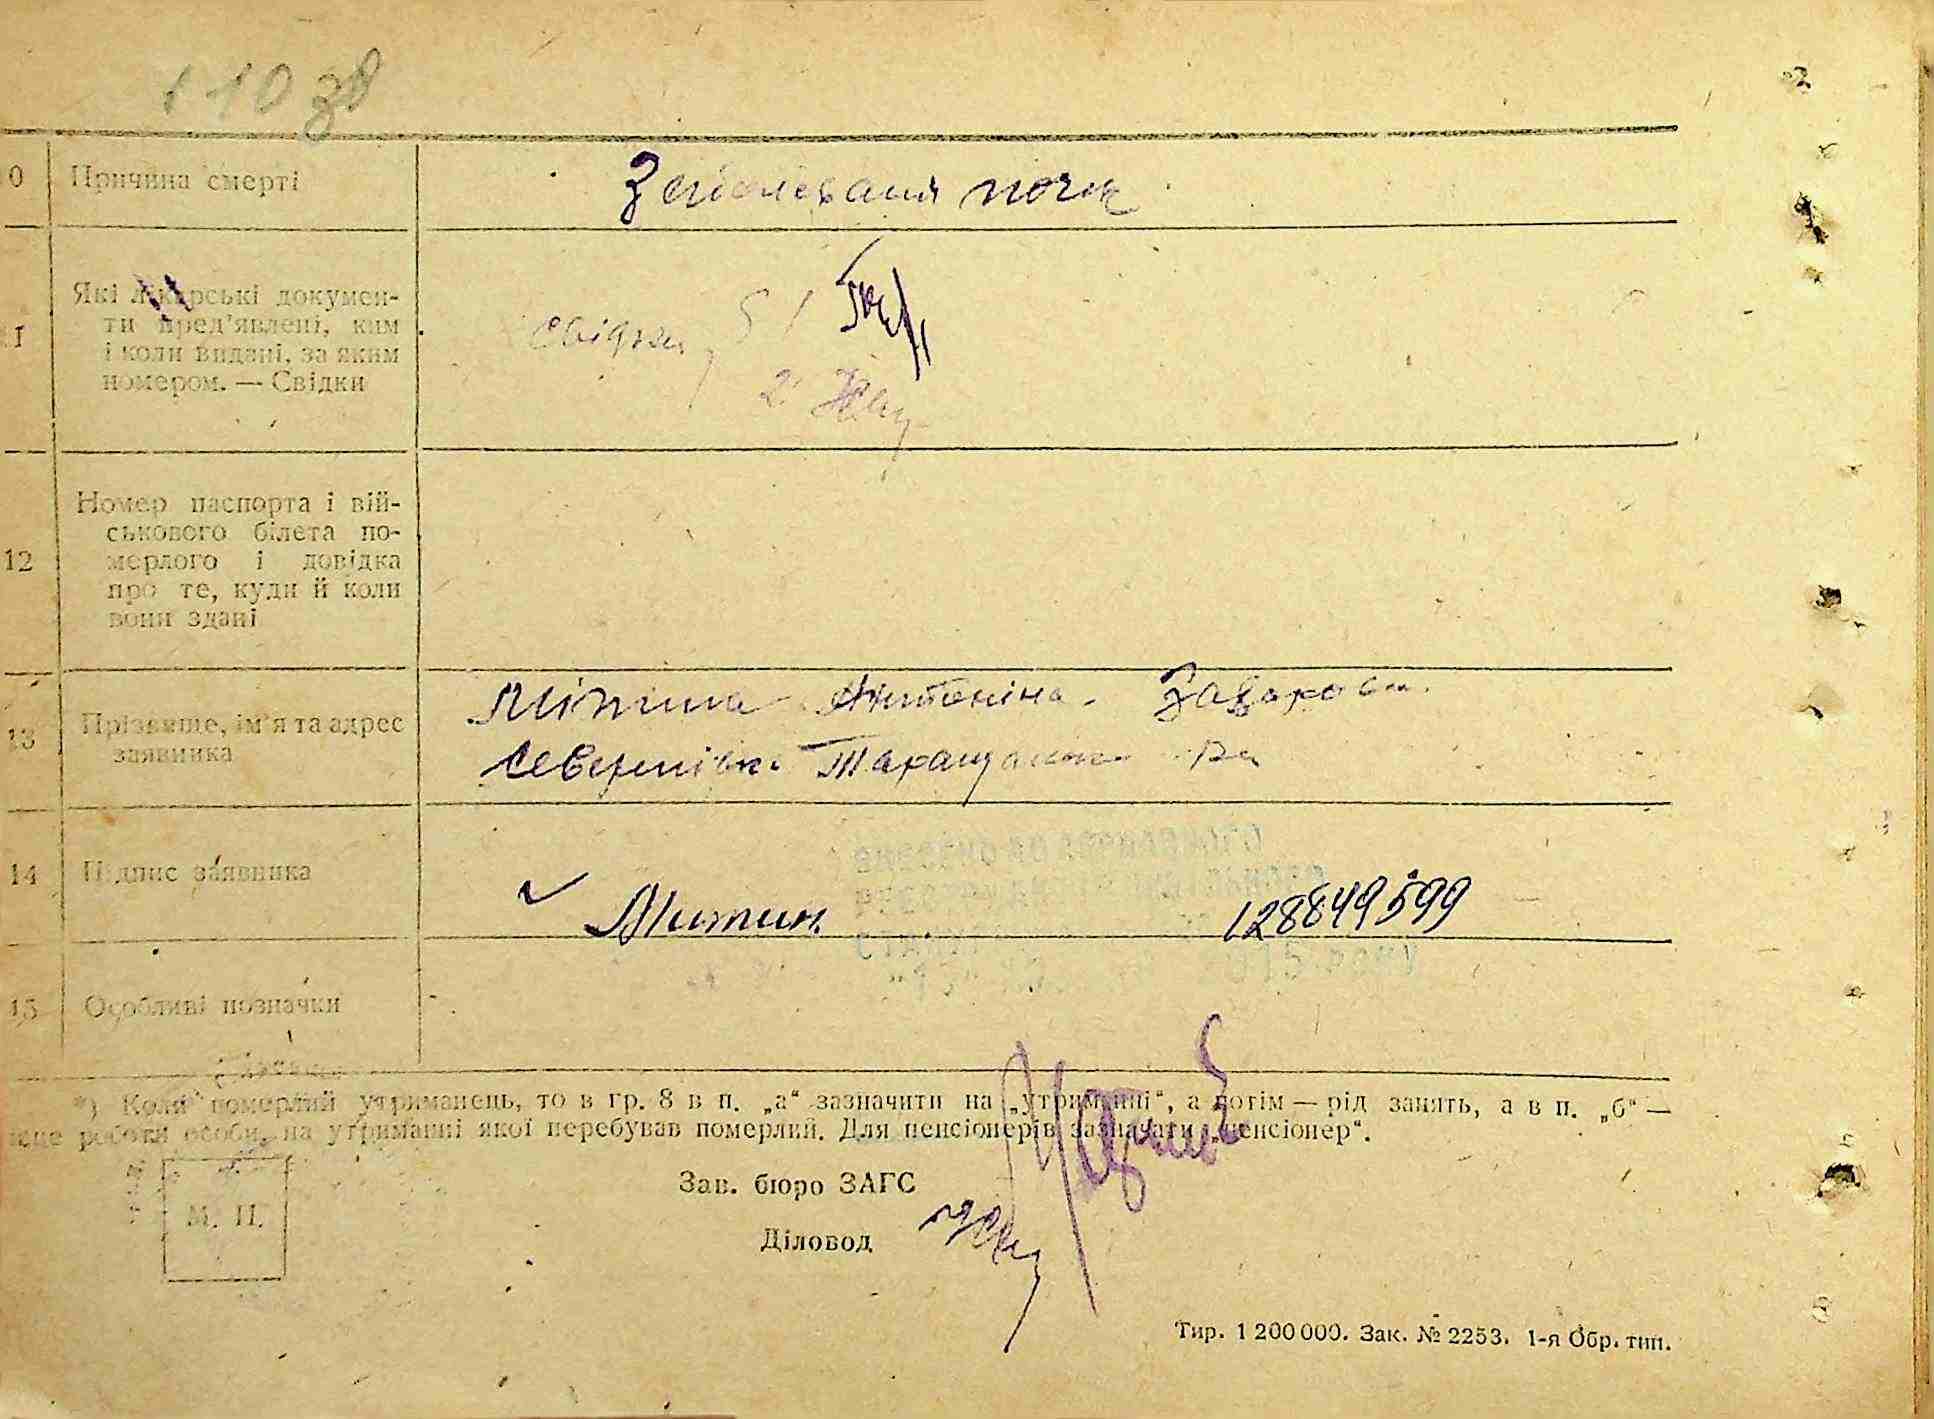 11038
10 Причина смерті
Заболеваня почек
11 Які лікарські докумен-
ти пред'явлені, ким
і коли видані, за яким
номером. — Свідки
свідки 1
2
12 Номер паспорта і вій-
ськового білета по-
мерлого і довідка
про те, куди й коли
вони здані
13 Прізвище, ім'я та адрес
заявника
Мітіна Антоніна
Таращанск
14 Підпис заявника
Митин 128849599
15 Особливі позначки
*) Коли померлий утриманець, то в гр. 8 в п. „а“ зазначити на „утриманні“, а потім — рід занять, а в п. „б“ —
місце роботи особи, на утриманні якої перебував померлий. Для пенсіонерів зазначати „пенсіонер“.
Зав. бюро ЗАГС
М. П.
Діловод
Тир. 1 200 000. Зак. № 2253. 1-я Обр. тип.